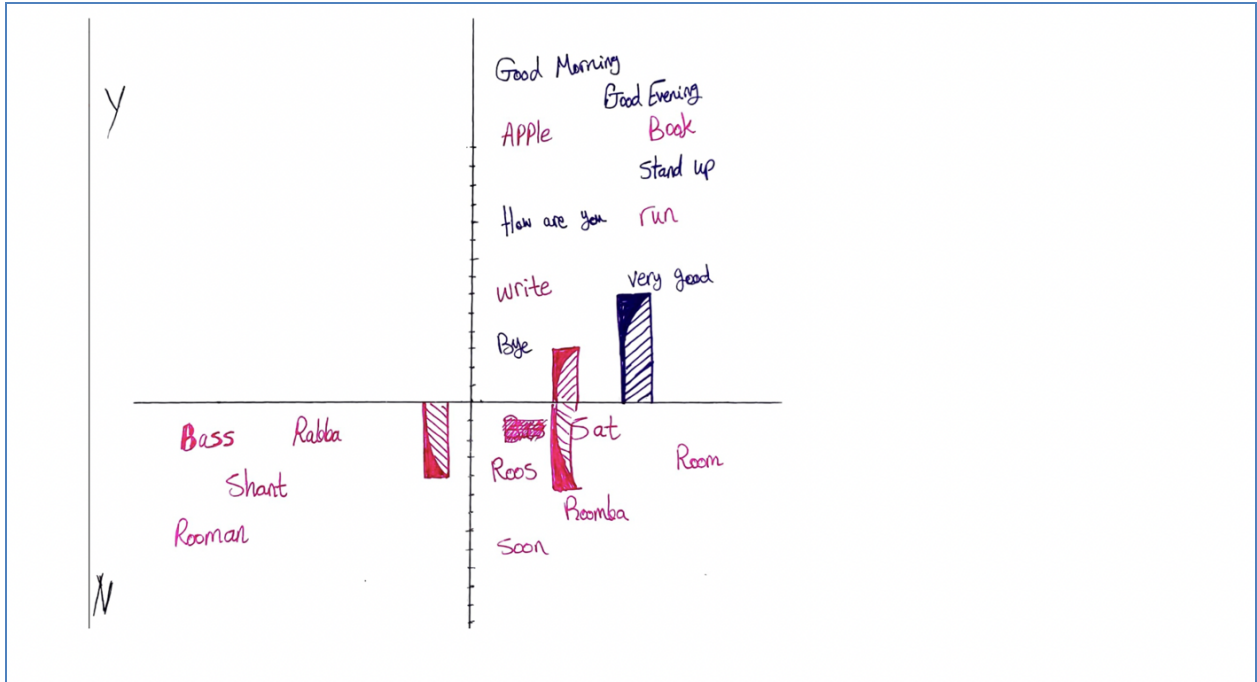 Good Morning
Y
Good Evening
APPle Book
Stand up
How are you run
write very good
Bye
Bass Rabba Sat
Roos Room
Shant
Roomba
Rooman
Soon
N